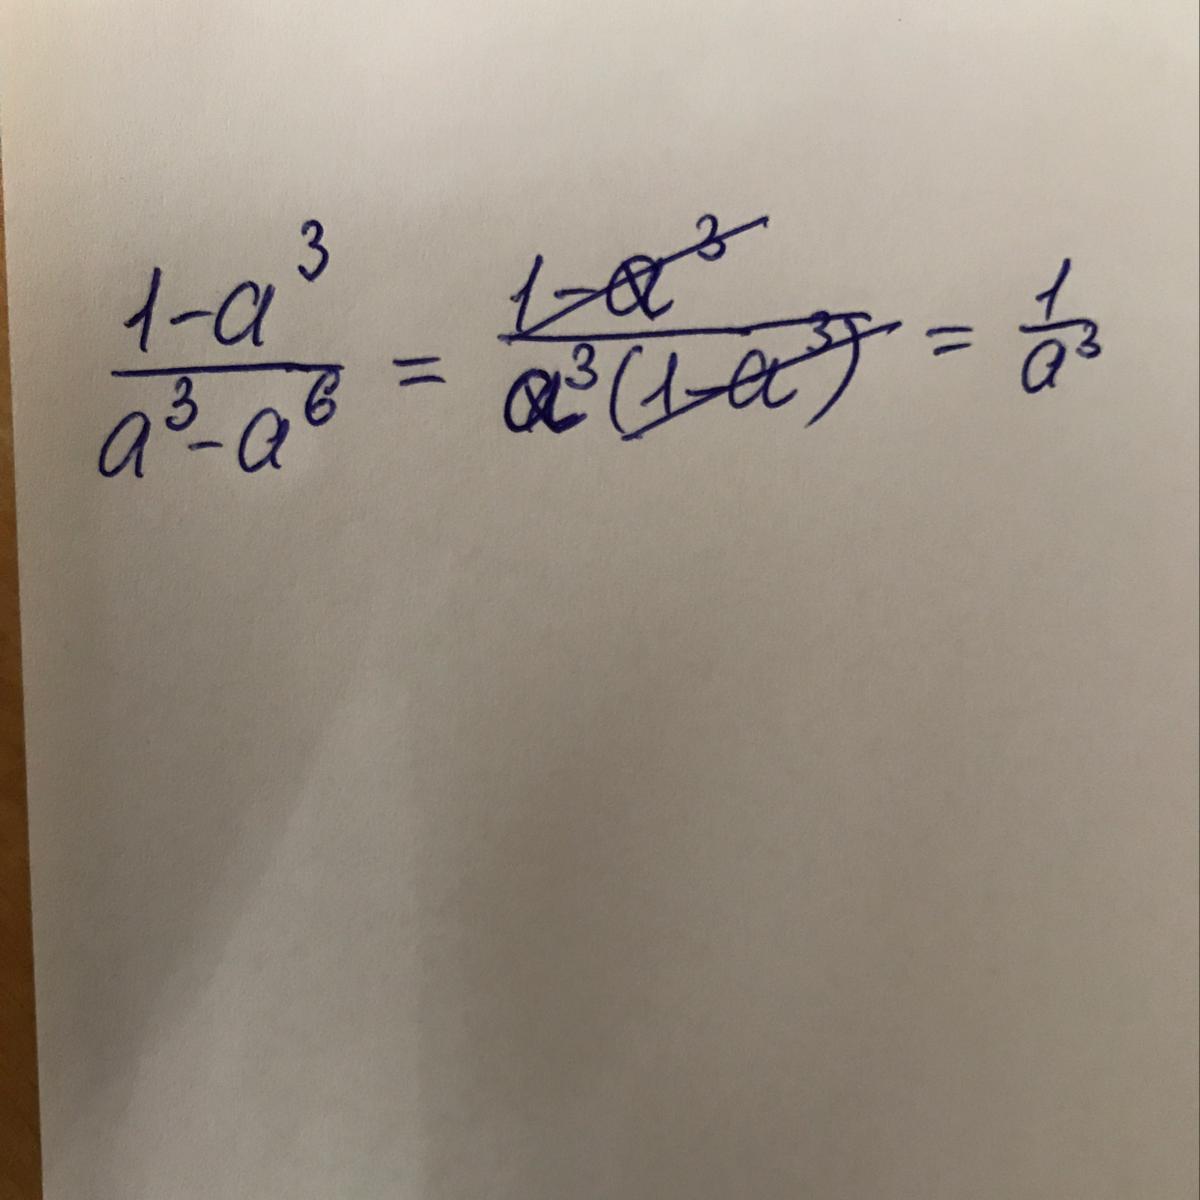 (1-a³)/(a³-a⁶) = (1-a³)/(a³(1-a³)) = 1/a³